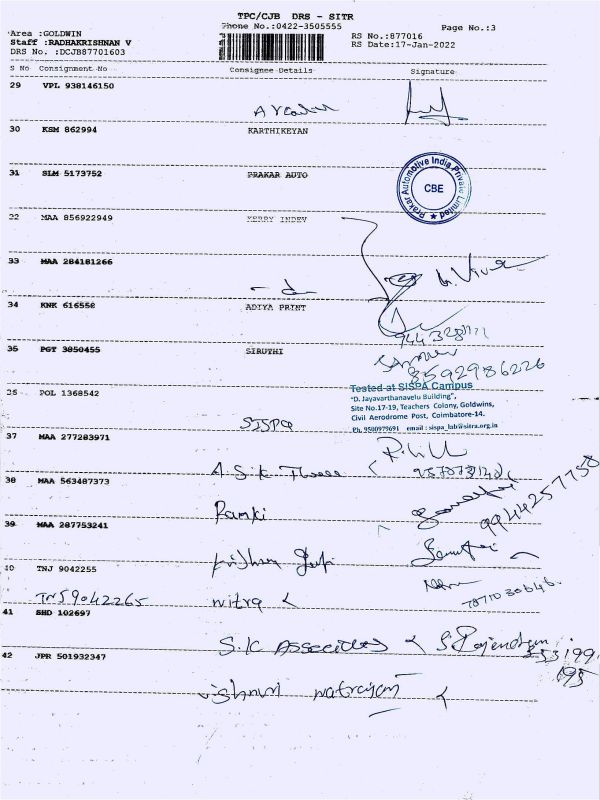 TPC/CJB DRS - SITR
Phone No.:0422-3505555
Page No.:3
Area :GOLDWIN
Staff :RADHAKRISHNAN V
DRS No. :DCJB87701603
RS No.:877016
RS Date:17-Jan-2022
S No Consignment No Consignee Details Signature
29 VPL 938146150
30 KSM 862994 KARTHIKEYAN
31 SLM 5173752 PRAKAR AUTO
Prakar Automotive India Private Limited ★
CBE
MAA 856922949 KERRY INDEV
33 MAA 284181266
34 KNK 616558 ADIYA PRINT
35 PGT 3850455 SIRUTHI
8592986226
POL 1368542
SISPA
Tested at SISPA Campus
"D. Jayavarthanavelu Building",
Site No.17-19, Teachers Colony, Goldwins,
Civil Aerodrome Post, Coimbatore-14.
Ph. 9500979691 email : sispa_lab@sitra.org.in
37 MAA 277283971
A.S.K
38 MAA 563487373
Ramki
9944257758
39 MAA 287753241
TNJ 9042255
TNJ9042265 Nitra
41 SHD 102697
S.K Associates S. Rajendran
42 JPR 501932347
Vishnu natrajan